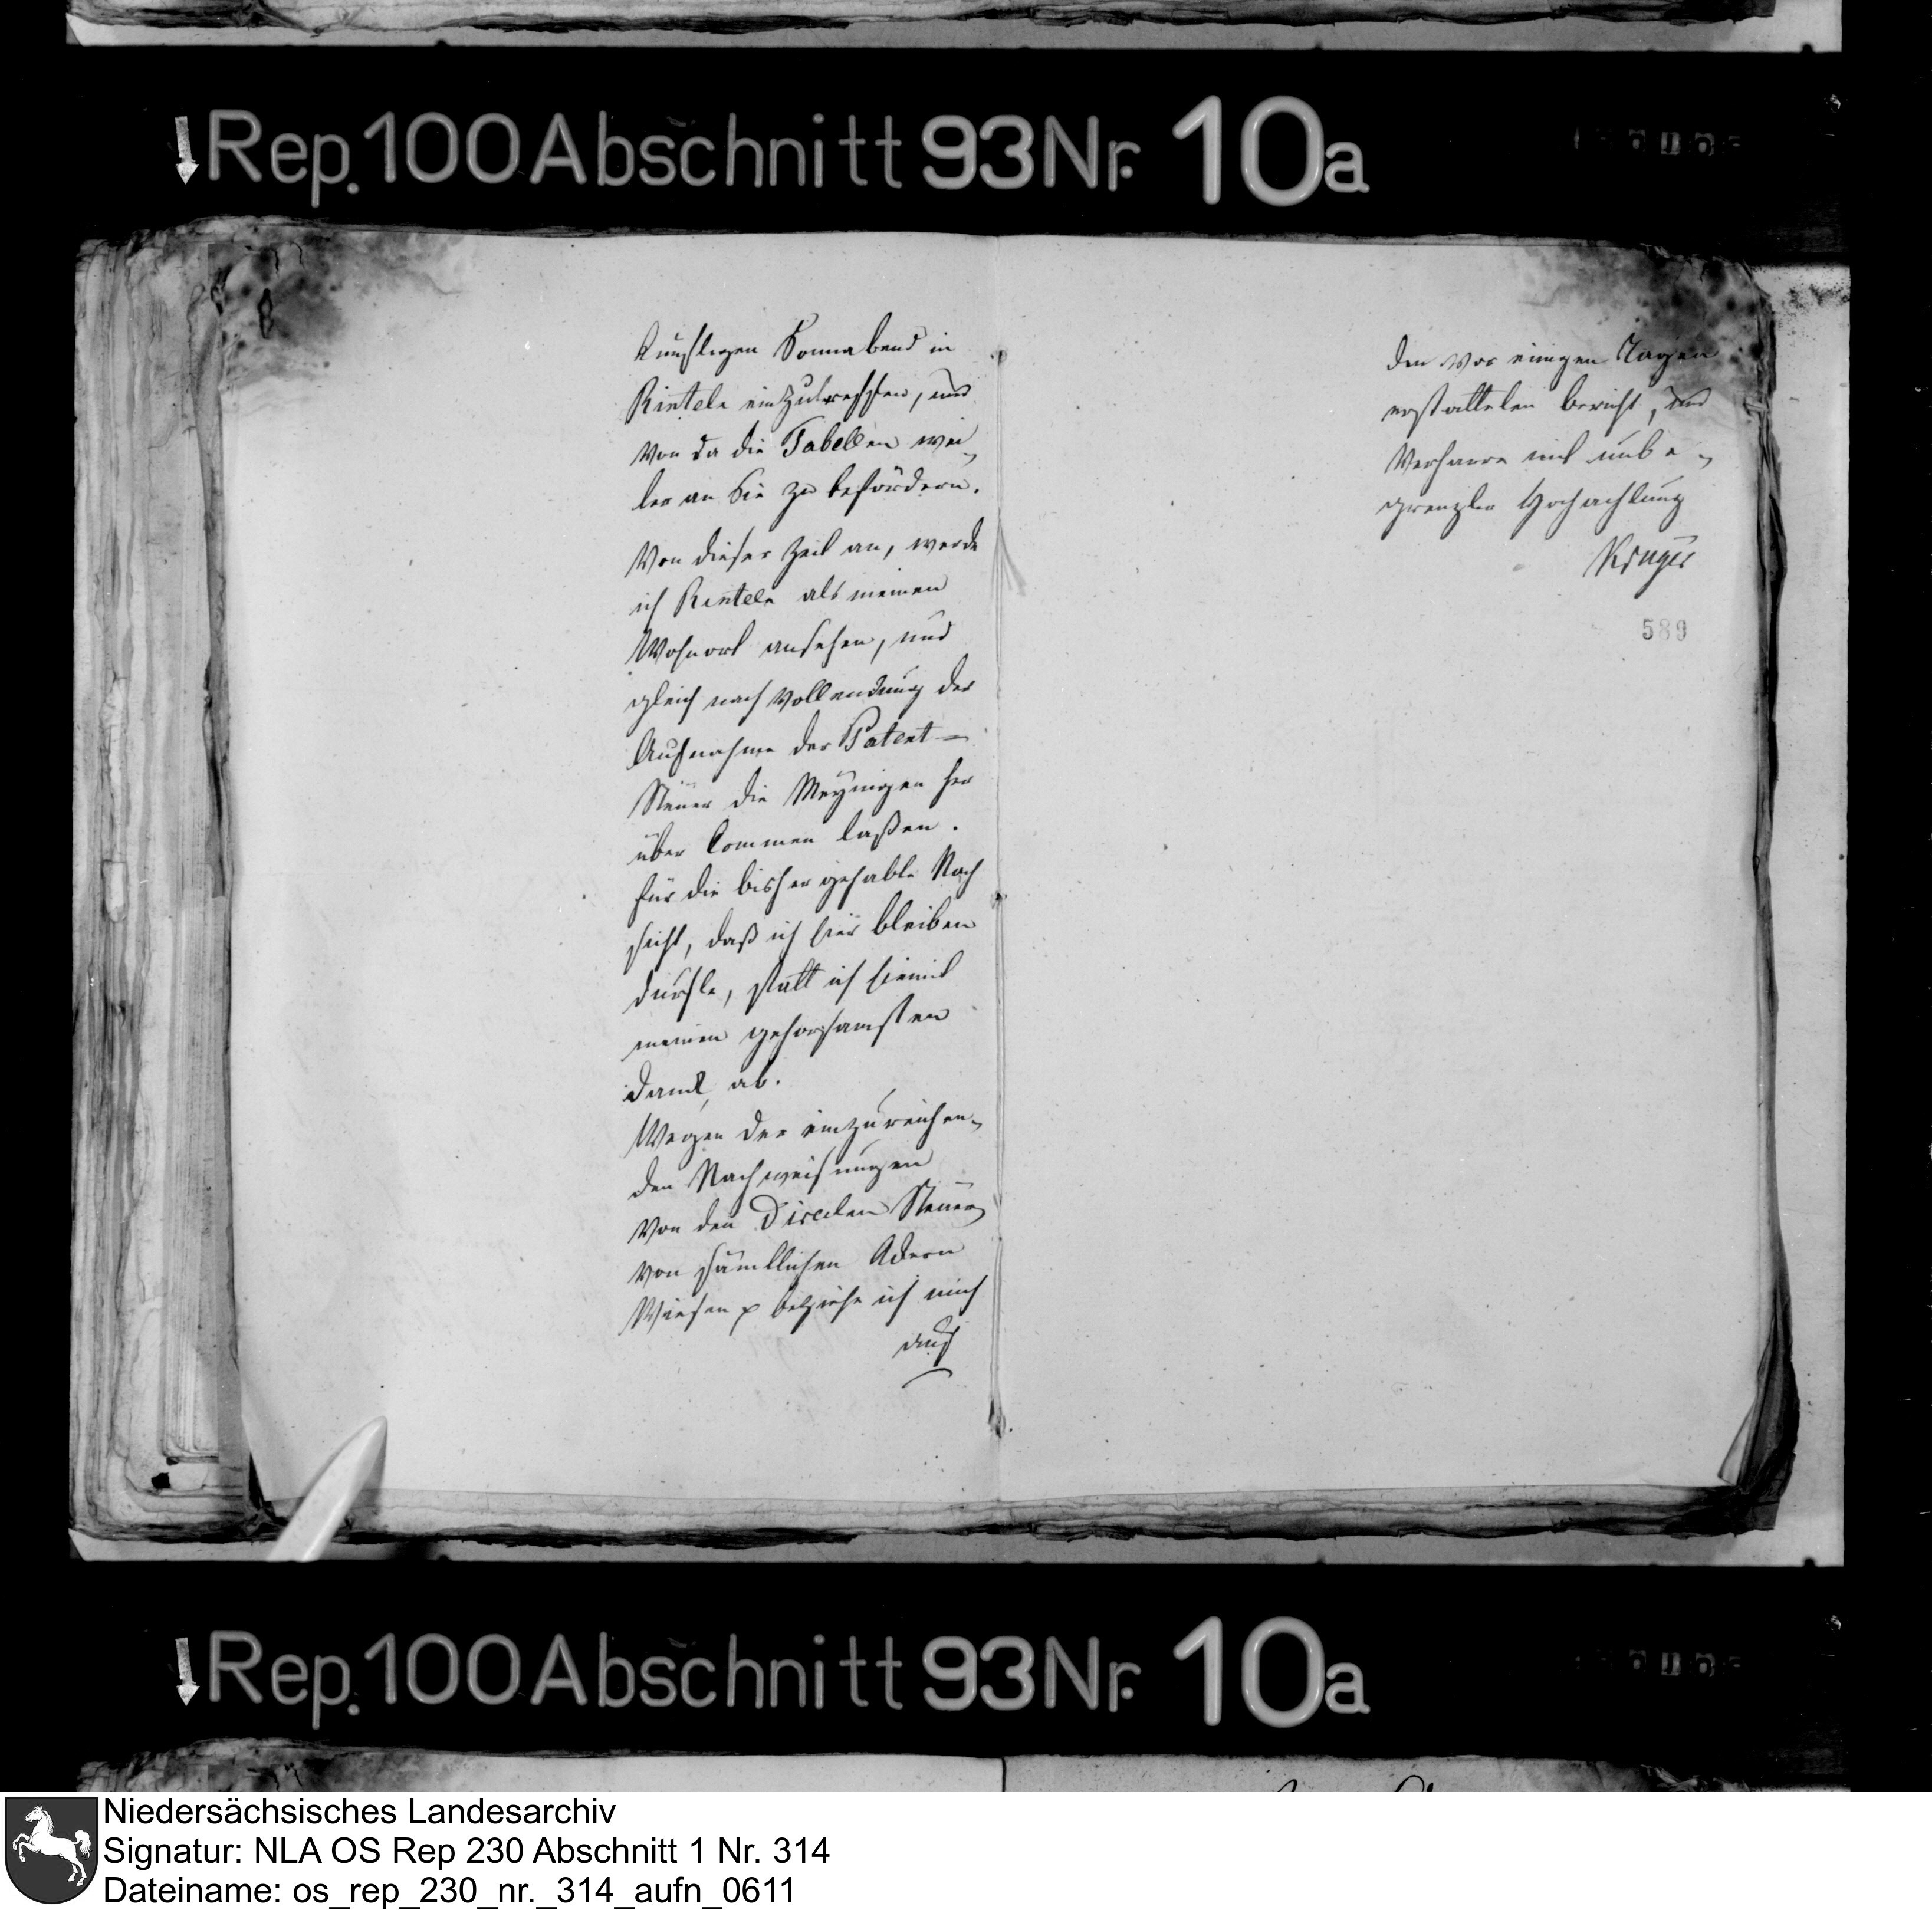 Rep. 100 Abschnitt 93 Nr. 10a
künftigen Sonnabend in
Rinteln einzutreffen, und
von da die Tabellen wei¬
ter an Sie zu befördern.
Von dieser Zeit an, werde
ich Rinteln als meinen
Wohnort ansehen, und
gleich nach Vollendung der
Aufnahme der Patent=
Steuer die Meynigen her
über kommen laßen.
für die bisher gehabte Nach
sicht, daß ich hier bleiben
durfte, statt ich hiemit
meinen gehorsamsten
Dank ab.
Wegen der einzureichen¬
den Nachweisungen
von den Directen Steuern
von sämtlichen Äckern
Wiesen p beziehe ich mich
auf
den vor einigen Tagen
erstatteten bericht, und
Verharre mit unbe¬
grenzter Hochachtung
Krüger
589
Rep. 100 Abschnitt 93 Nr. 10a
Niedersächsisches Landesarchiv
Signatur: NLA OS Rep 230 Abschnitt 1 Nr. 314
Dateiname: os_rep_230_nr._314_aufn_0611